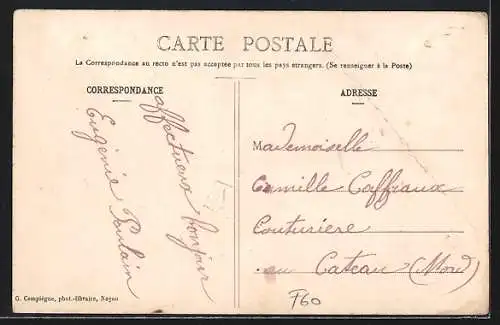 CARTE POSTALE
La Correspondance au recto n'est pas acceptée par tous les pays étrangers. (Se renseigner à la Poste)
CORRESPONDANCE
affectueux bonjour
Eugénie Poulain
ADRESSE
Mademoiselle
Camille Caffiaux
Couturière
au Cateau (Nord)
G. Compiègne, phot.-libraire, Noyon
F60